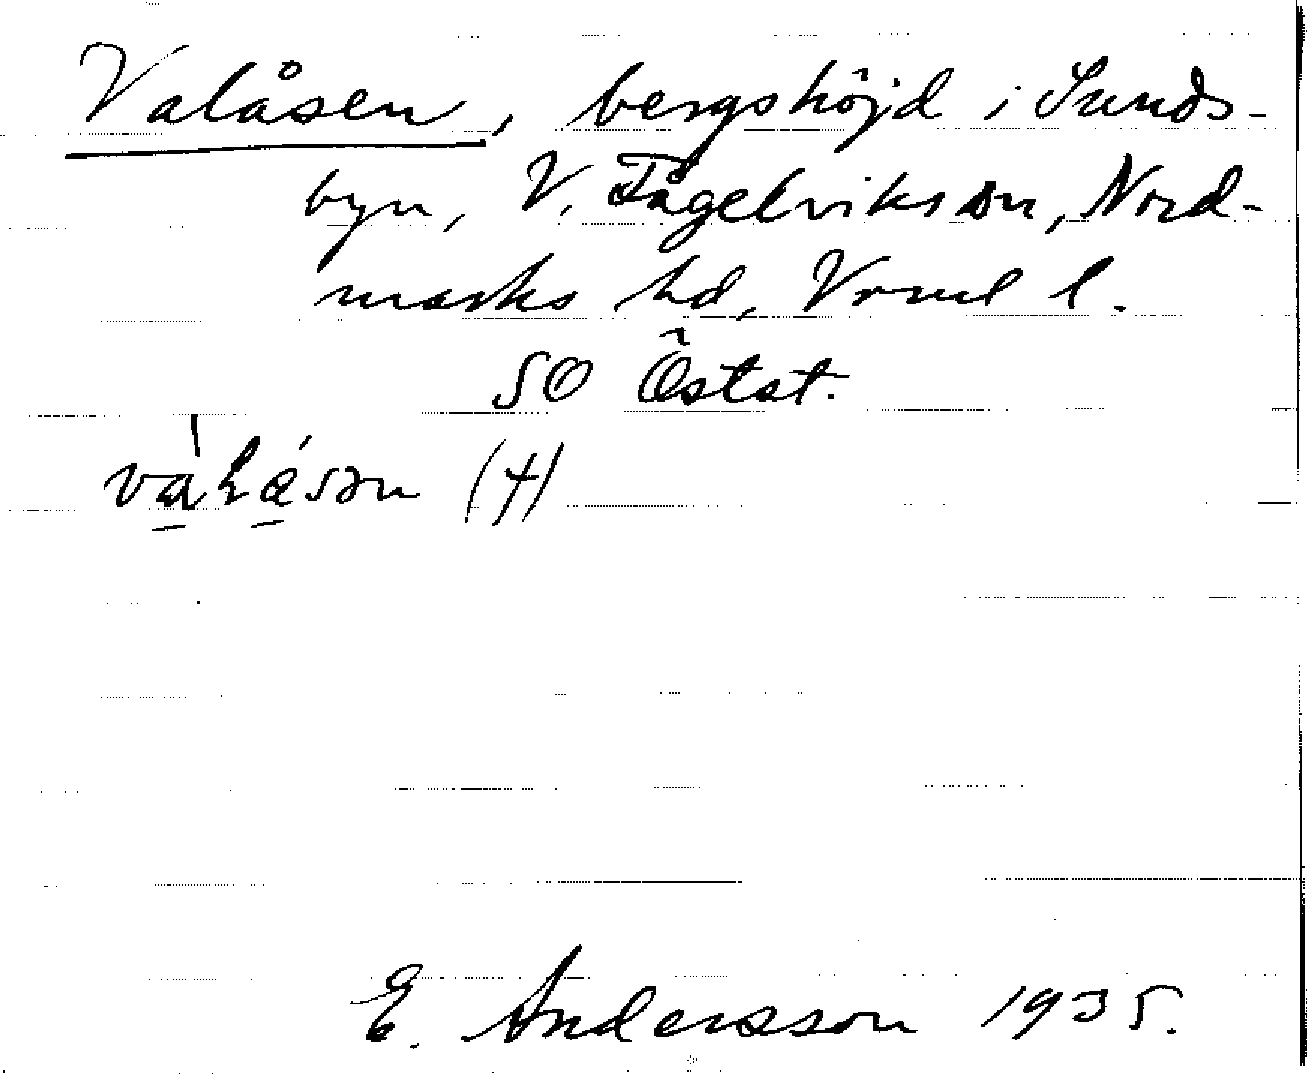 Valåsen, bergshöjd i Sunds-
byn, V. Fågelvikssn, Nord-
marks hd, Vrml l.
SO Östat.
(4)
E. Andersson 1935.